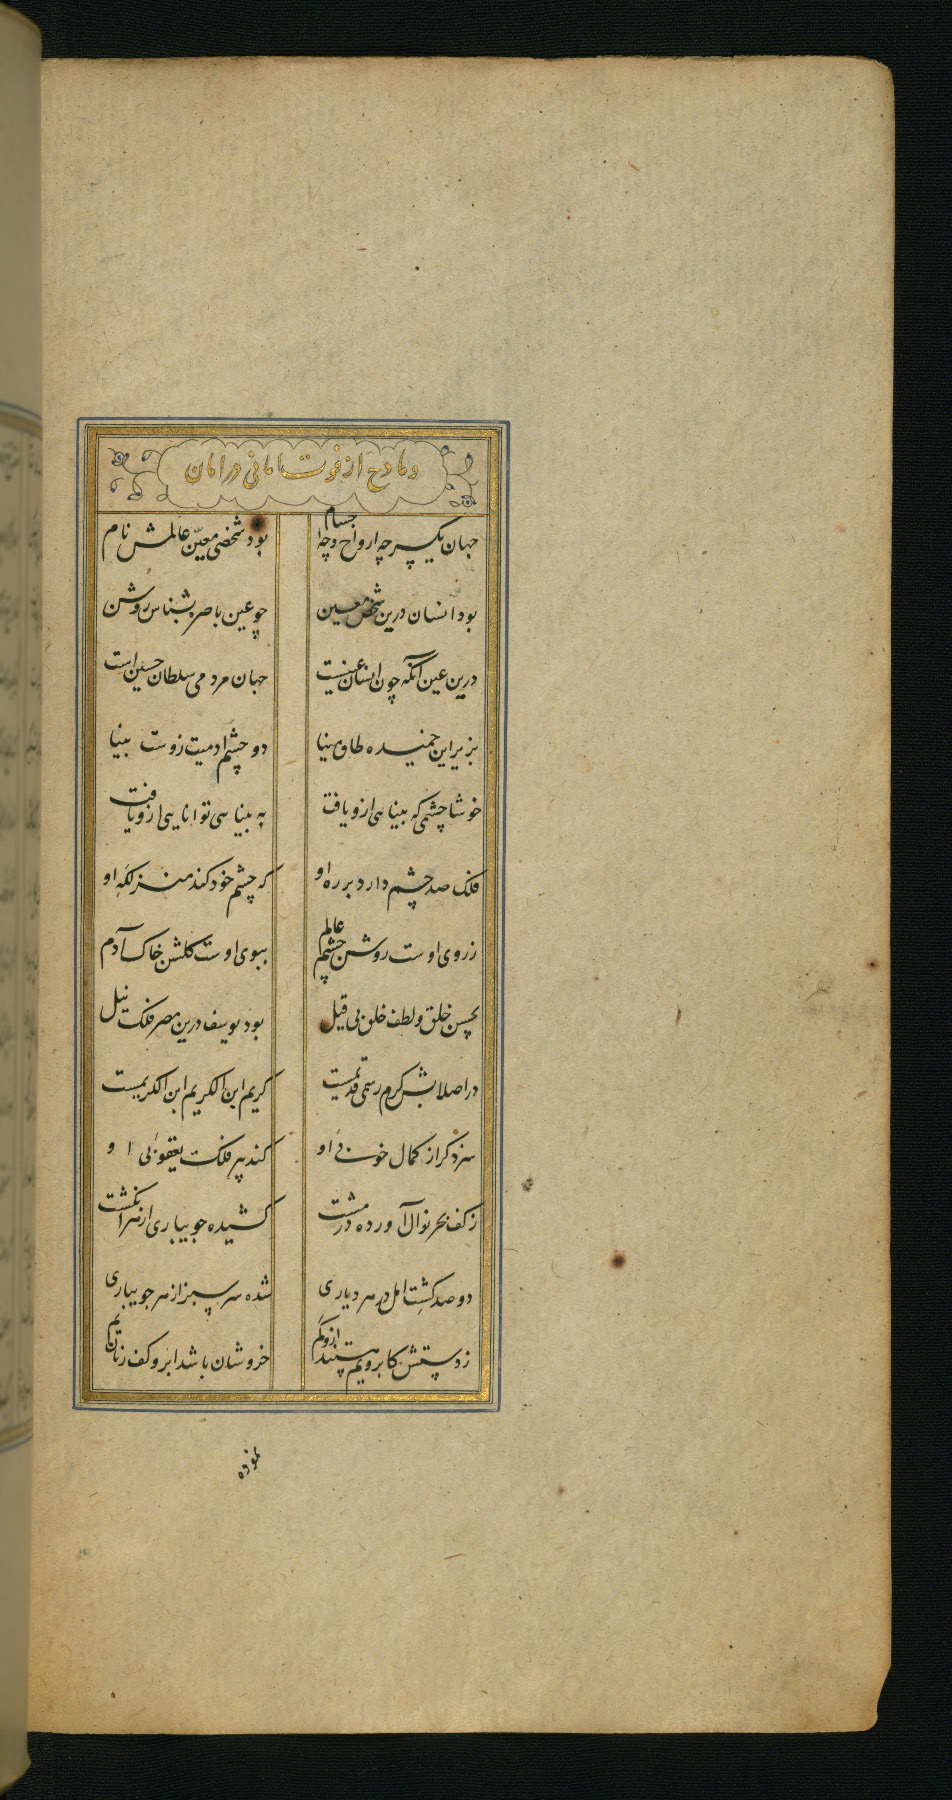 و مادح از فوت امانی در امان
جهان یکسر چه ارواح و چه اجسام
بود شخصی معین عالمش نام
بود انسان درین شخص معین
چو عین باصره بشناس روشن
درین عین آنکه چون انسان عینیست
جهان مردمی سلطان حسین است
بزیر این خمیده طاق مینا
دو چشم ادمیت زوست بینا
خوشا چشمی که بینایی ازو یافت
به بینایی توانایی ازو یافت
فلک صد چشم دارد بر ره او
که چشم خود کند منزلگه او
ز روی اوست روشن چشم عالم
ببوی اوست گلشن خاک آدم
بحسن خلق و لطف خلق بی قیل
بود یوسف درین مصر فلک نیل
در اصلابش کرم رسمی قدیمست
کریم ابن الکریم ابن الکریمست
سزد گر از کمال خوبی او
کند پیر فلک یعقوبی او
ز کف بحر نوال آورده در مشت
کشیده جویباری از سر انگشت
دو صد کشت امل در هر دیاری
شده سرسبز از هر جویباری
ز دستش کابر و یم هستند ازو کم
خروشان باشد ابر و کف زنان یم
نموده